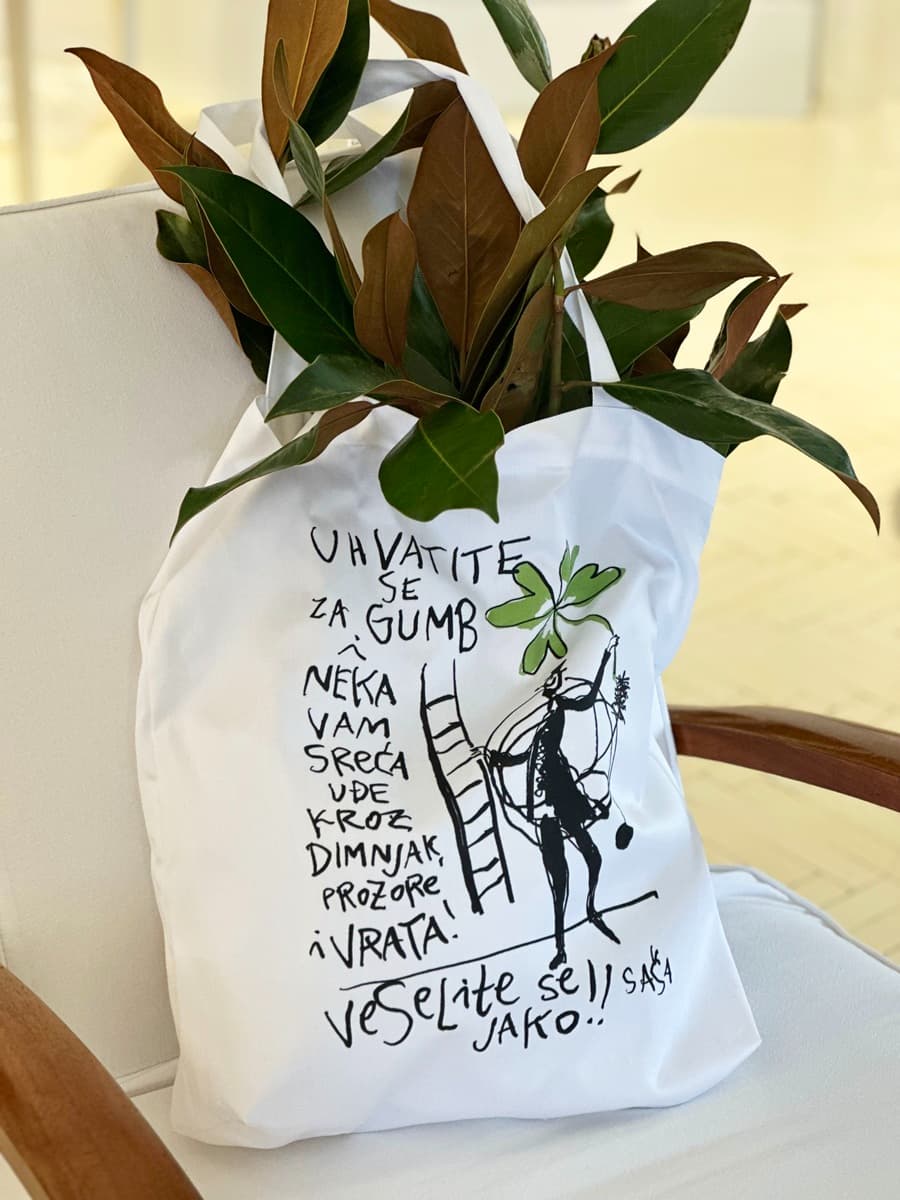 UHVATITE
SE
ZA GUMB
i
NEKA
VAM
SREĆA
UĐE
KROZ
DIMNJAK,
PROZORe
i VRATA!
VeSeLite se!!
JAKO!!
SAŠA